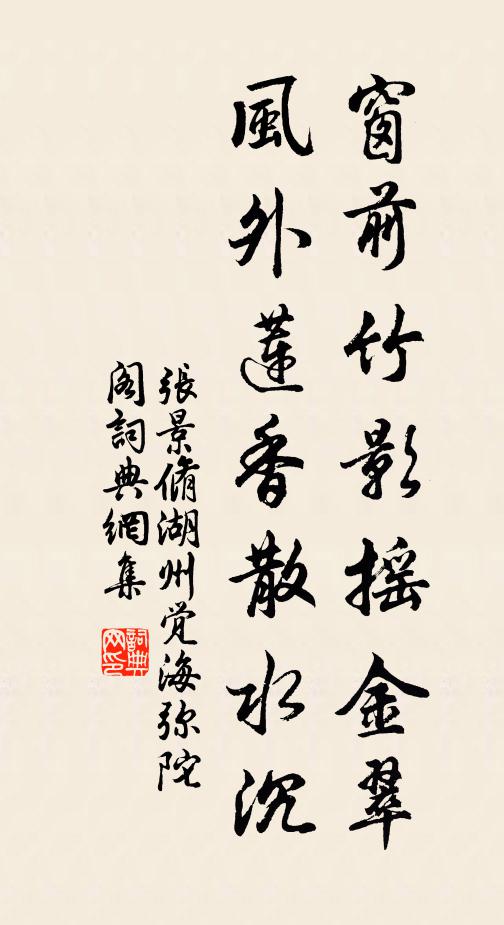 窗前竹影搖金翠
風外蓮香散水沉
張景脩湖州觉海弥陀
阁詞典網集
詞典网印